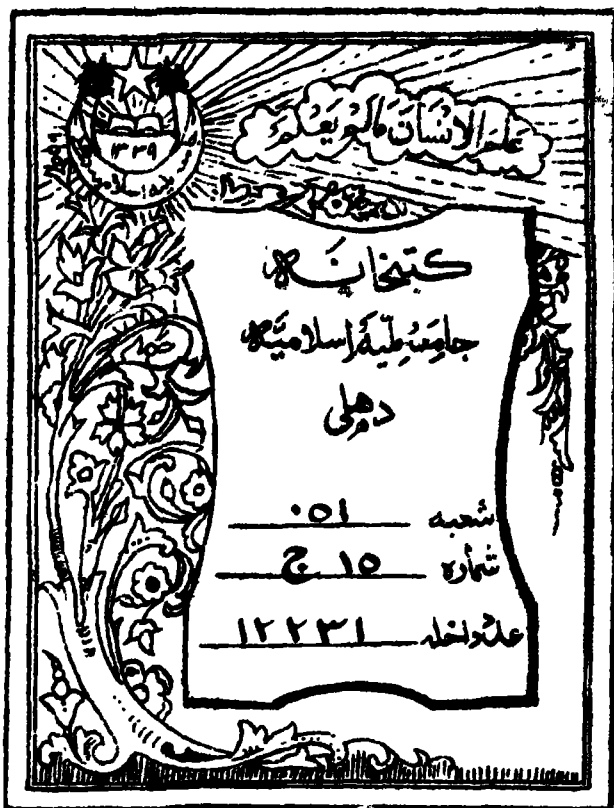 علم الانسان مالم يعلم
۱۳۳۹
کتبخانہ
جامعہ ملیہ اسلامیہ
دہلی
شعبہ ۰۵۱
شمارہ ۱۵ ج
عدد داخلہ ۱۲۲۳۱